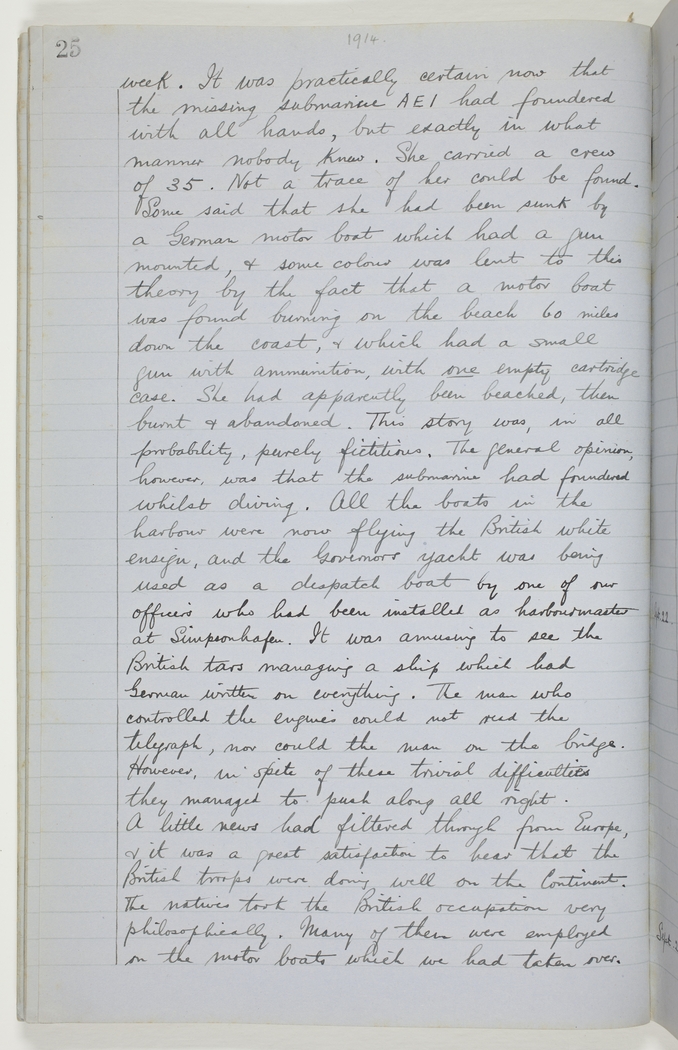 25
1914.
week. It was practically certain now that
the missing submarine AE1 had foundered
with all hands, but exactly in what
manner nobody knew. She carried a crew
of 35. Not a trace of her could be found.
Some said that she had been sunk by
a German motor boat which had a gun
mounted, & some colour was lent to this
theory by the fact that a motor boat
was found burning on the beach 60 miles
down the coast, & which had a small
gun with ammunition, with one empty cartridge
case. She had apparently been beached, then
burnt & abandoned. This story was, in all
probability, purely fictitious. The general opinion,
however, was that the submarine had foundered
whilst diving. All the boats in the
harbour were now flying the British white
ensign, and the Governors yacht was being
used as a despatch boat by one of our
officers who had been installed as harbourmaster
at Simpsonhafen. It was amusing to see the
British tars managing a ship which had
German written on everything. The man who
controlled the engines could not read the
telegraph, nor could the man on the bridge.
However, in spite of these trivial difficulties
they managed to push along all right.
A little news had filtered through from Europe,
& it was a great satisfaction to hear that the
British troops were doing well on the Continent.
The natives took the British occupation very
philosophically. Many of them were employed
on the motor boats which we had taken over.